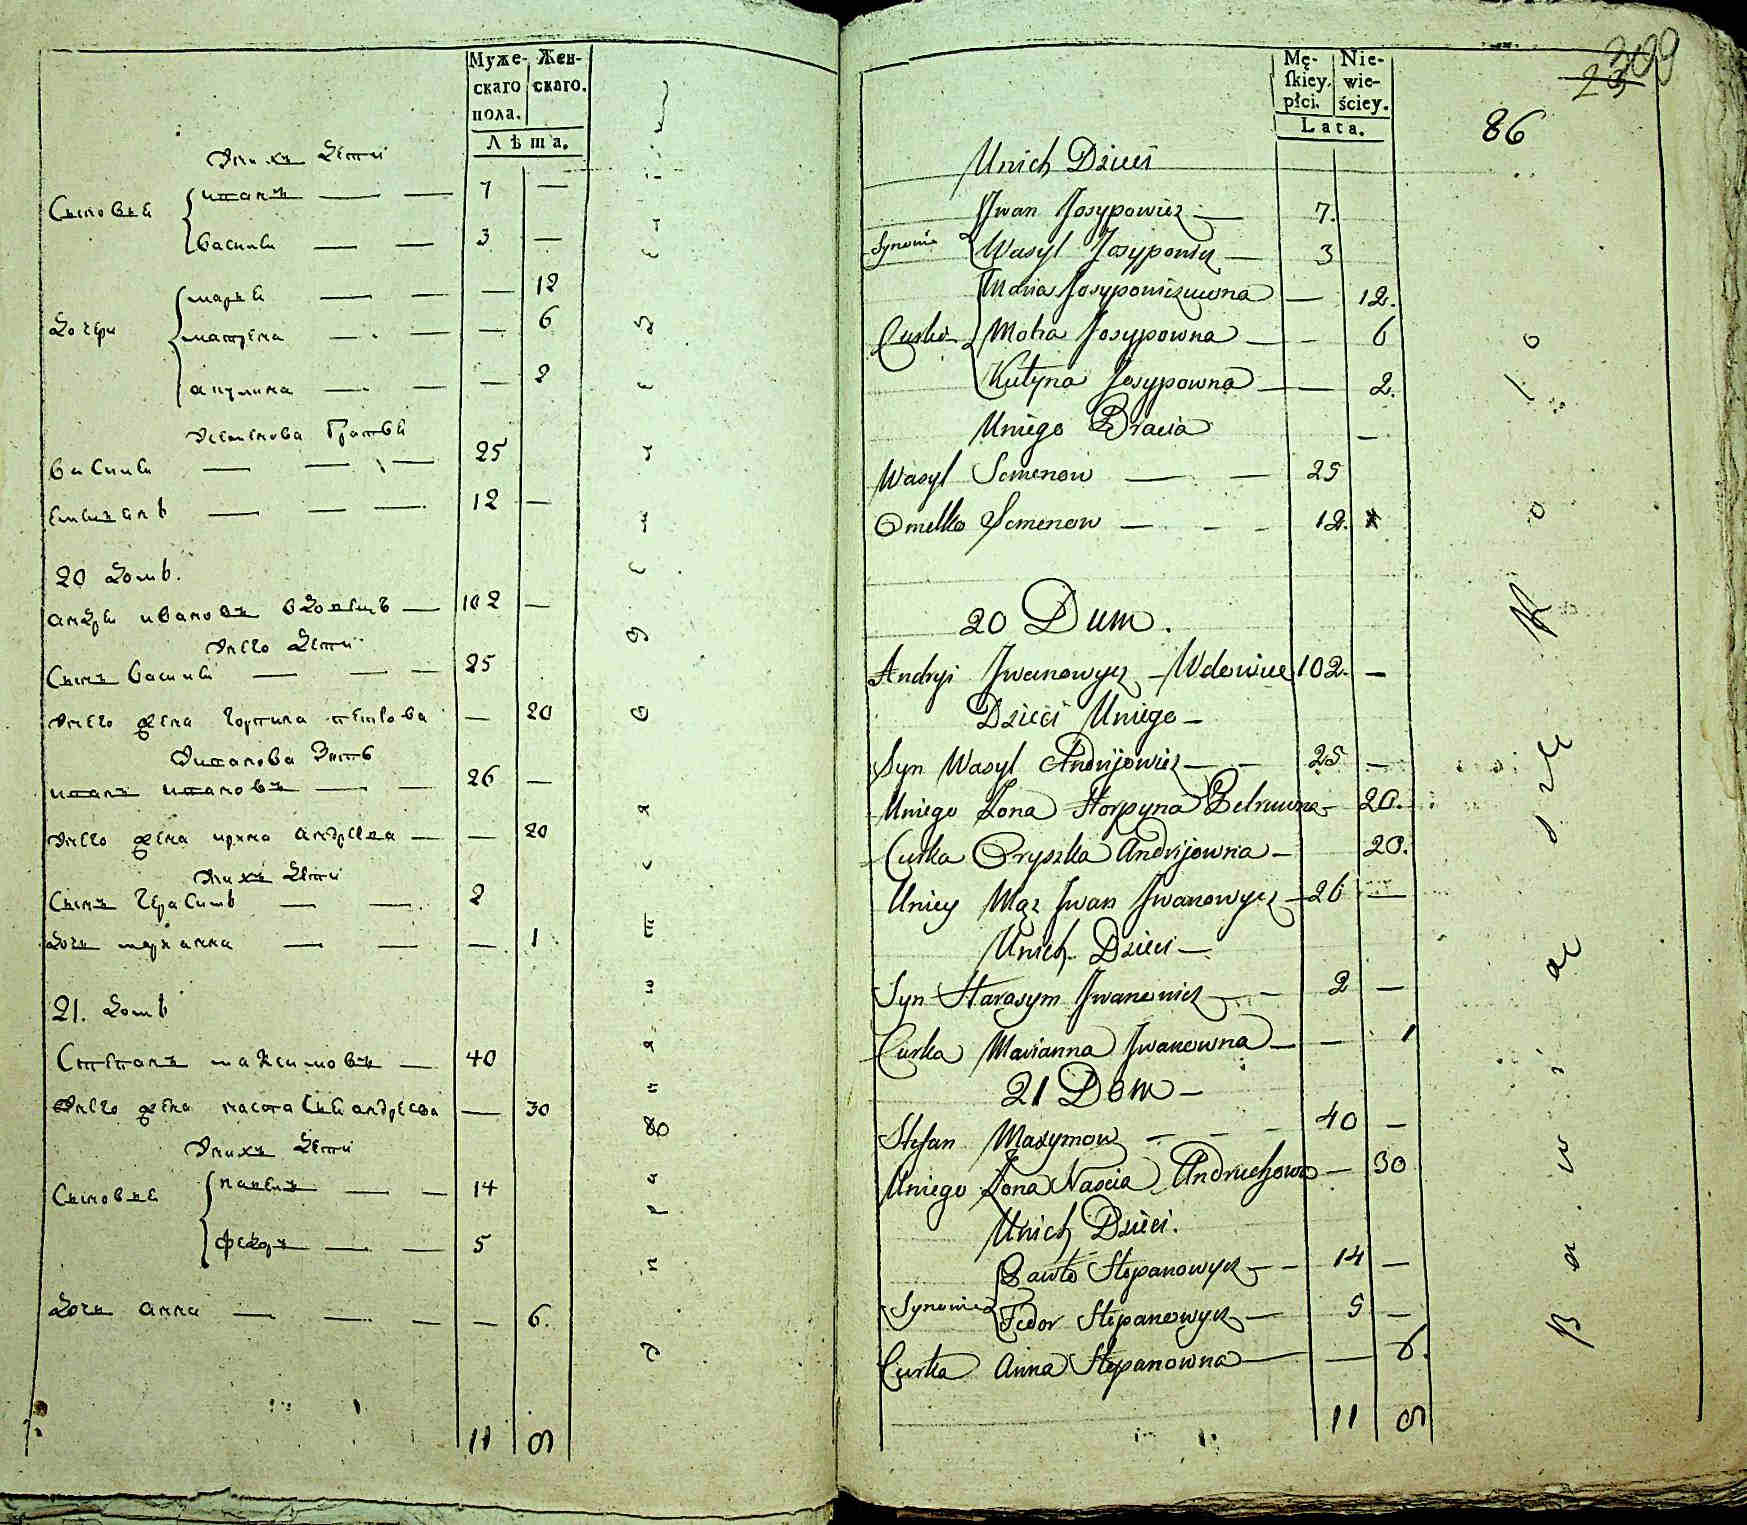 Муже-
скаго
пола.
Жен-
скаго.
Лѣта.
Унихъ Дѣти
Сыновья
Иванъ — — 7 —
Василей — — 3 —
Дочери
Марья — — — 12
Матрена — — — 6
Акулина — — — 2
Василей — — — 25
Емельянъ — — — 12 —
20 Домъ.
Андрей Ивановъ Вдовецъ — 102 —
Унего Дѣти
Сынъ Василей — — 25
Унего жена Горпина Петрова — 20
Иванъ Ивановъ — — 26 —
Унего жена Ирина Андреева — — 20
Унихъ Дѣти
Сынъ Герасимъ — — 2
Дочь Марианна — — — 1
21. Домъ
Степанъ Максимовъ — 40
Унего жена — 30
Унихъ Дѣти
Сыновья
Павелъ — — 14
Федоръ — — 5
Дочь Анна — — — — 6.
11 9
Mę-
ſkiey
płci.
Nie-
wie-
ściey.
Lata.
86
Unich Dzieci
Iwan Josypowicz — 7.
Synowie
Wasyl Josypowicz — 3
Maria Josypowiczuwna — 12.
Curki
Motra Josypowna — — 6
Kulyna Josypowna — — 2.
Uniego Bracia —
Wasyl Semenow — — 25
Omelko Semenow — — — 12.
20 Dum.
Andryi Iwanowycz — Wdowiec 102. —
Dzieci Uniego —
Syn Wasyl Andrijowicz — — 25 —
Uniego Zona Horpyna Petruwna — 20.
Curka Oryszka Andrijowna — 20.
Uniey Mąz Iwan Iwanowycz — 26 —
Unich Dzieci —
Syn Harasym Iwanowicz — — 2 —
Curka Marianna Iwanowna — — 1
21 Dom —
Stefan Maxymow — — — 40 —
Uniego Zona Nascia Andruchowa — 30
Unich Dzieci.
Pawło Stepanowycz — — 14 —
Synowie
Fedor Stepanowycz — 5 —
Curka Anna Stepanowna — — 6.
11 9